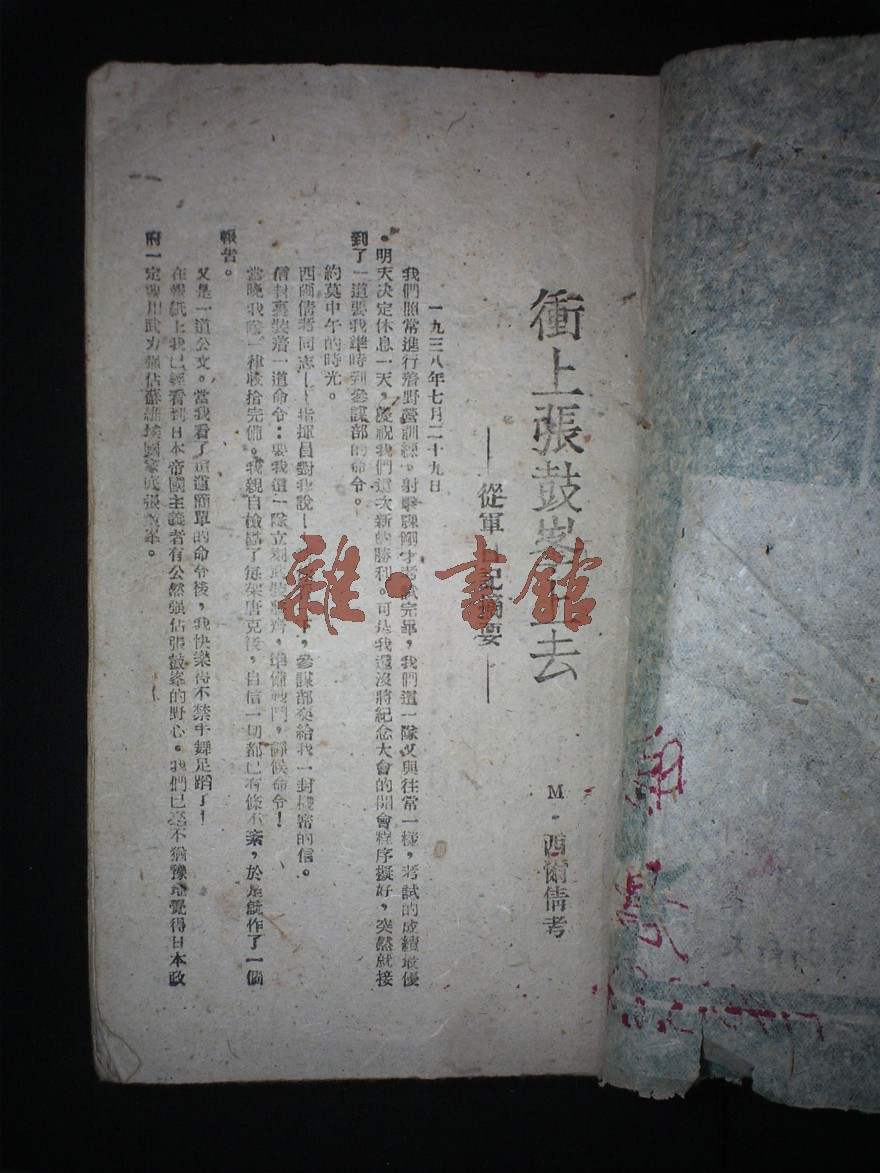 衝上張鼓峯去
——從軍日記摘要——
M·西爾倩考
一九三八年七月二十九日
我們照常進行着野營訓練。射擊課剛才考試完畢,我們這一隊又與往常一樣,考試的成績最優
。明天決定休息一天,慶祝我們這次新的勝利。可是我還沒將紀念大會的開會程序擬好,突然就接
到了一道要我準時到參謀部的命令。
約莫中午的時光。
西爾倩考同志——指揮員對我說——下,參謀部交給我一封機密的信。
信封裏裝着一道命令:要我這一隊立刻武裝齊,準備戰鬥,靜候命令!
當晚我隊一律收拾完備。我親自檢點了每架唐克後,自信一切都已有條不紊,於是就作了一個
報告。
又是一道公文。當我看了這道簡單的命令後,我快樂得不禁手舞足蹈了!
在報紙上我已經看到日本帝國主義者有公然强佔張鼓峯的野心。我們已毫不猶豫地覺得日本政
府一定要用武力强佔蘇維埃國家底張鼓峯。
雜·書館